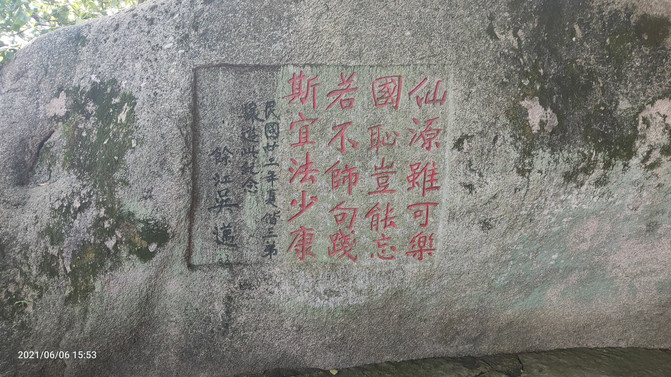 仙源雖可樂
國恥豈能忘
若不師句踐
斯宜法少康
民國廿二年夏偕三弟
遊此紀念
餘江吳邁
2021/06/06 15:53